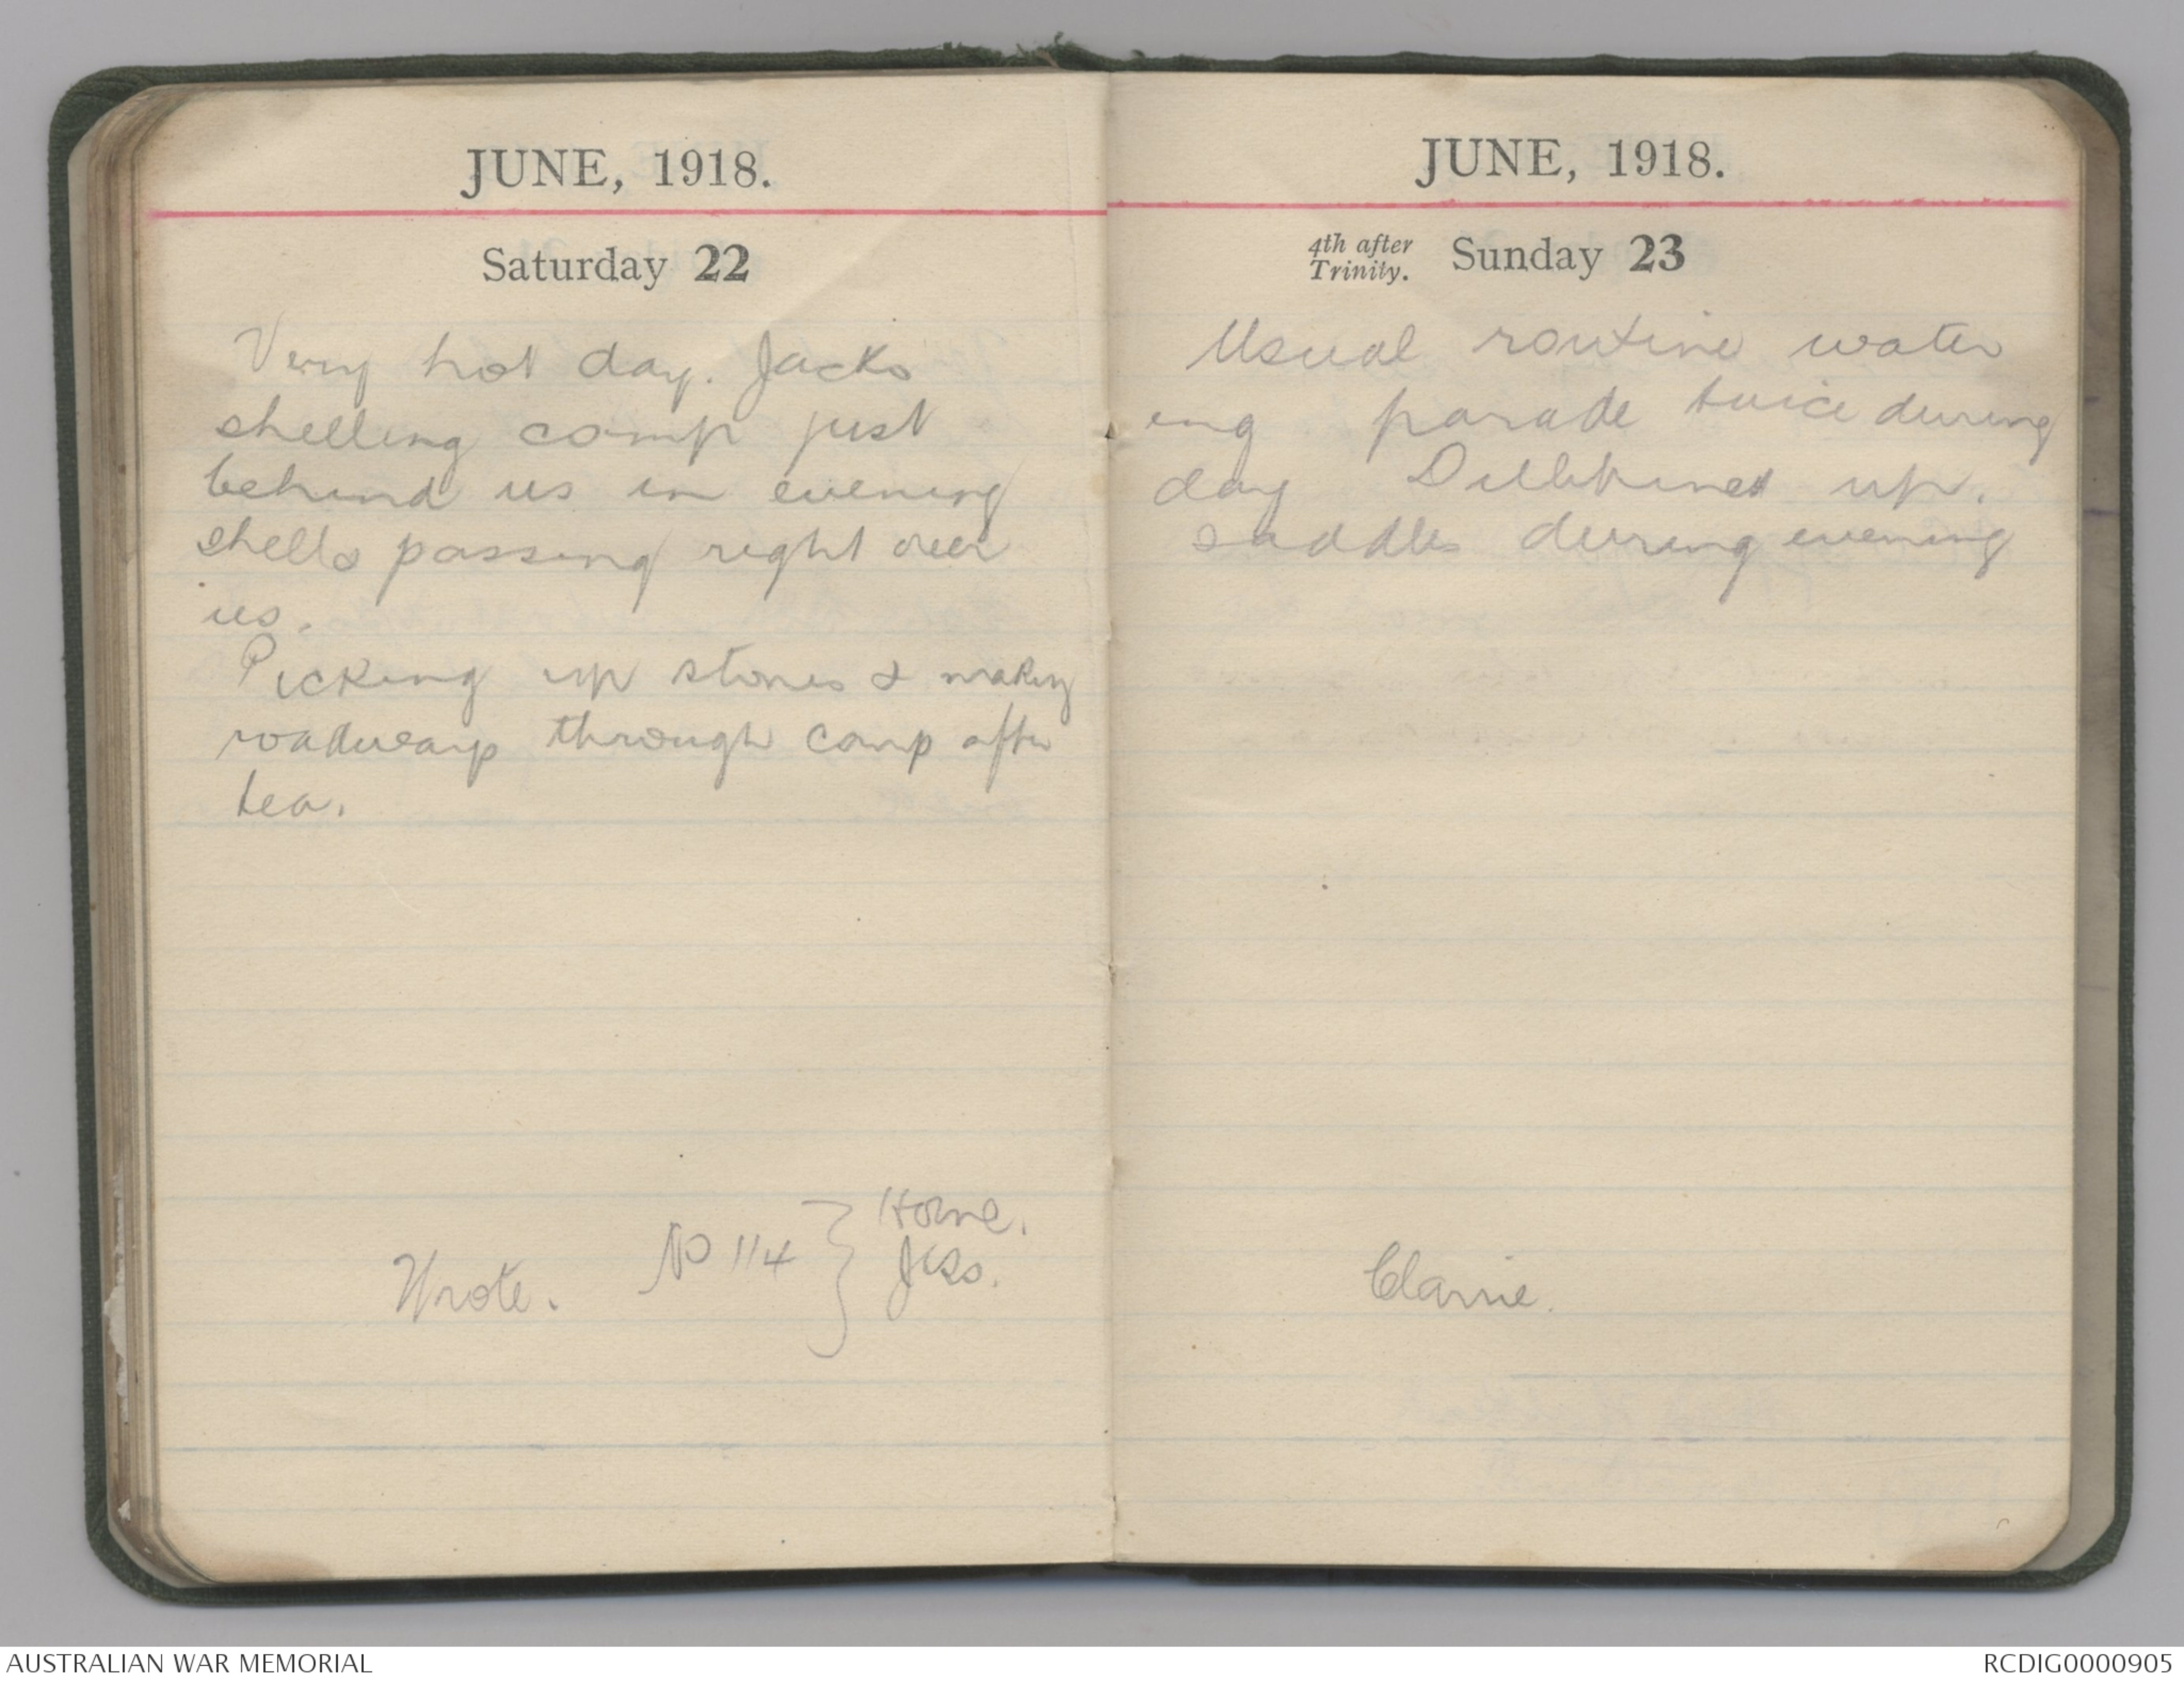 JUNE, 1918.
Saturday 22
Very hot day. Jacko
shelling camp just
behind us in evening
shells passing right over
us.
Picking up stones & making
roadways through camp after
tea.
Wrote. No 114 } Home.
Jess.
JUNE, 1918.
4th after
Trinity. Sunday 23
Usual routine water
ing parade twice during
day up.
saddles during evening
Clarrie.
AUSTRALIAN WAR MEMORIAL
RCDIG0000905